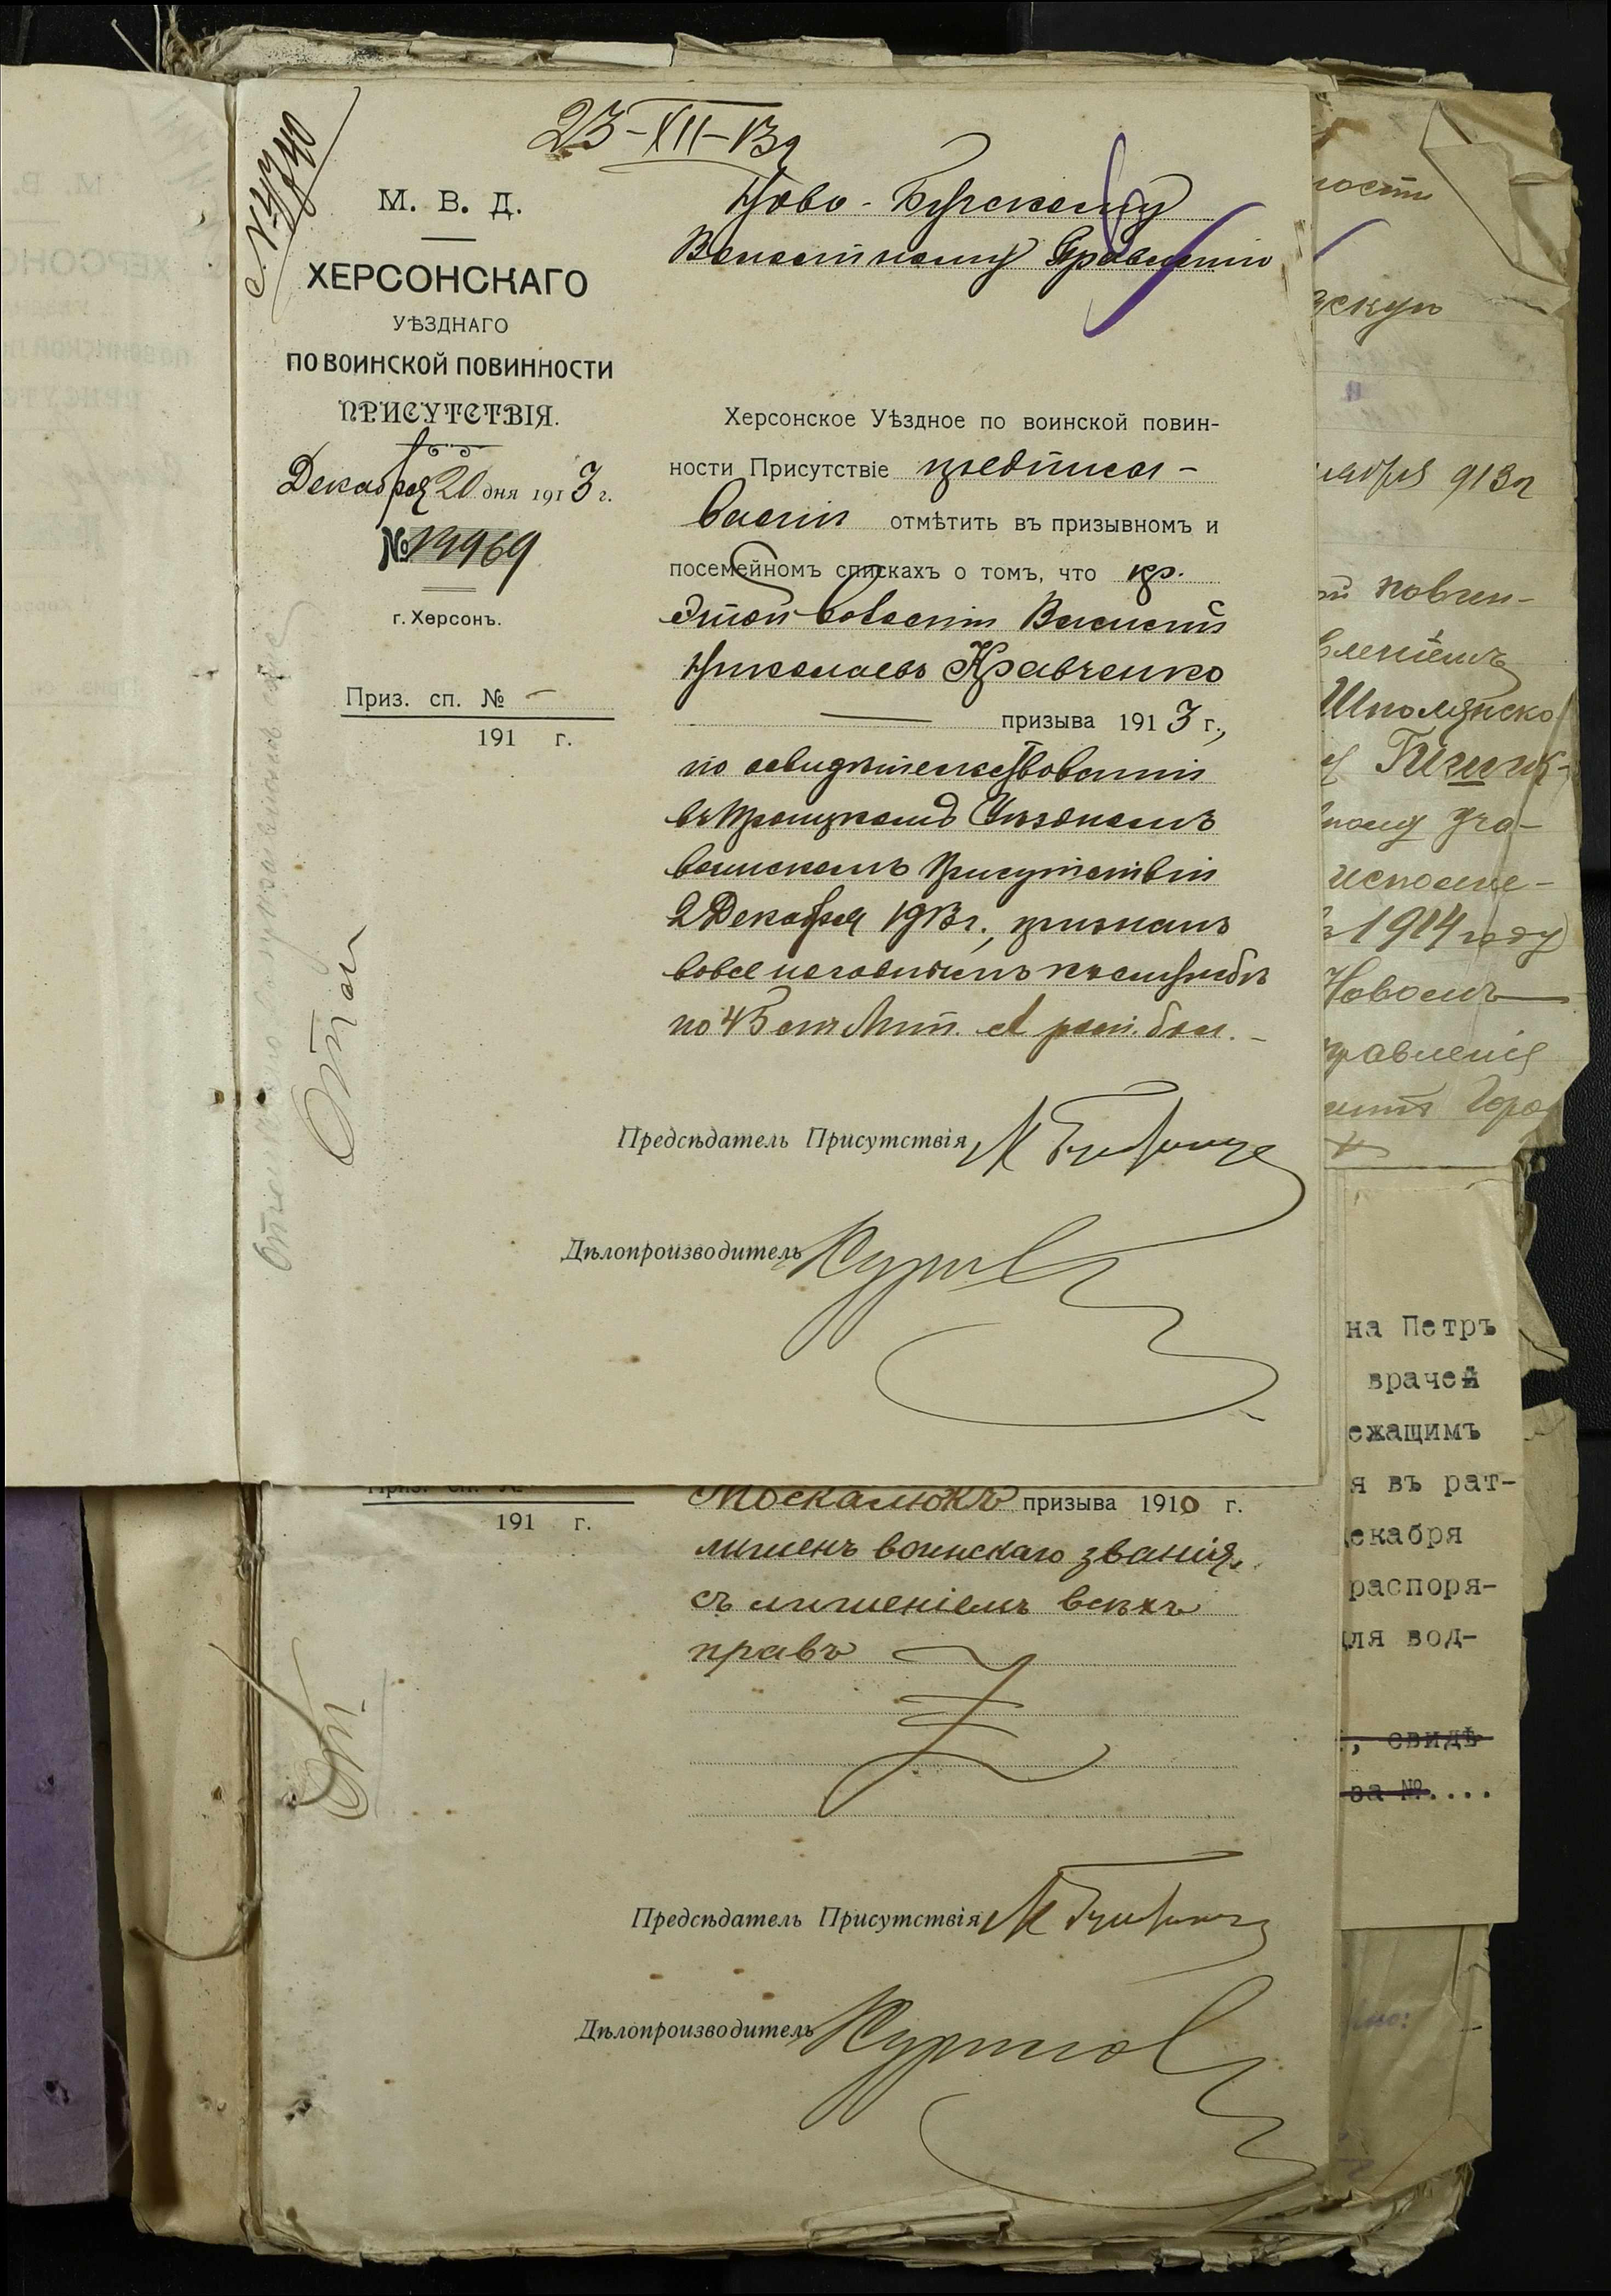 23-XII-13 г
№ 4740
М. В. Д.
ХЕРСОНСКАГО
УѢЗДНАГО
ПО ВОИНСКОЙ ПОВИННОСТИ
ПРИСУТСТВІЯ.
Декабря 20 дня 1913 г.
№ 13969
г. Херсонъ.
Приз. сп. № -
191 г.
Отм
Ново-Бугскому
Волостному Правленію
Херсонское Уѣздное по воинской повин-
ности Присутствіе предписы-
ваетъ отмѣтить въ призывномъ и
посемейномъ спискахъ о томъ, что кр.
этой волости Василій
Николаевъ Кравченко
призыва 1913 г.,
по освидѣтельствованіи
въ Троицкомъ Уѣздномъ
воинскомъ Присутствіи
2 Декабря 1913 г., признанъ
вовсе негоднымъ къ службѣ
по 45 ст. Лит. А росп. бол.
Предсѣдатель Присутствія
Дѣлопроизводитель
191 г.
От.
Москалюкъ призыва 1910 г.
лишенъ воинскаго званія,
съ лишеніемъ всѣхъ
правъ
Предсѣдатель Присутствія
Дѣлопроизводитель
ности
ября 913 г
ой повин-
вленіемъ
Шполянско
ному уча-
исполне-
1914 году)
Новомъ
правленія
на Петръ
врачей
ежащимъ
я въ рат-
екабря
распоря-
для вод-
, свидѣ
за №....